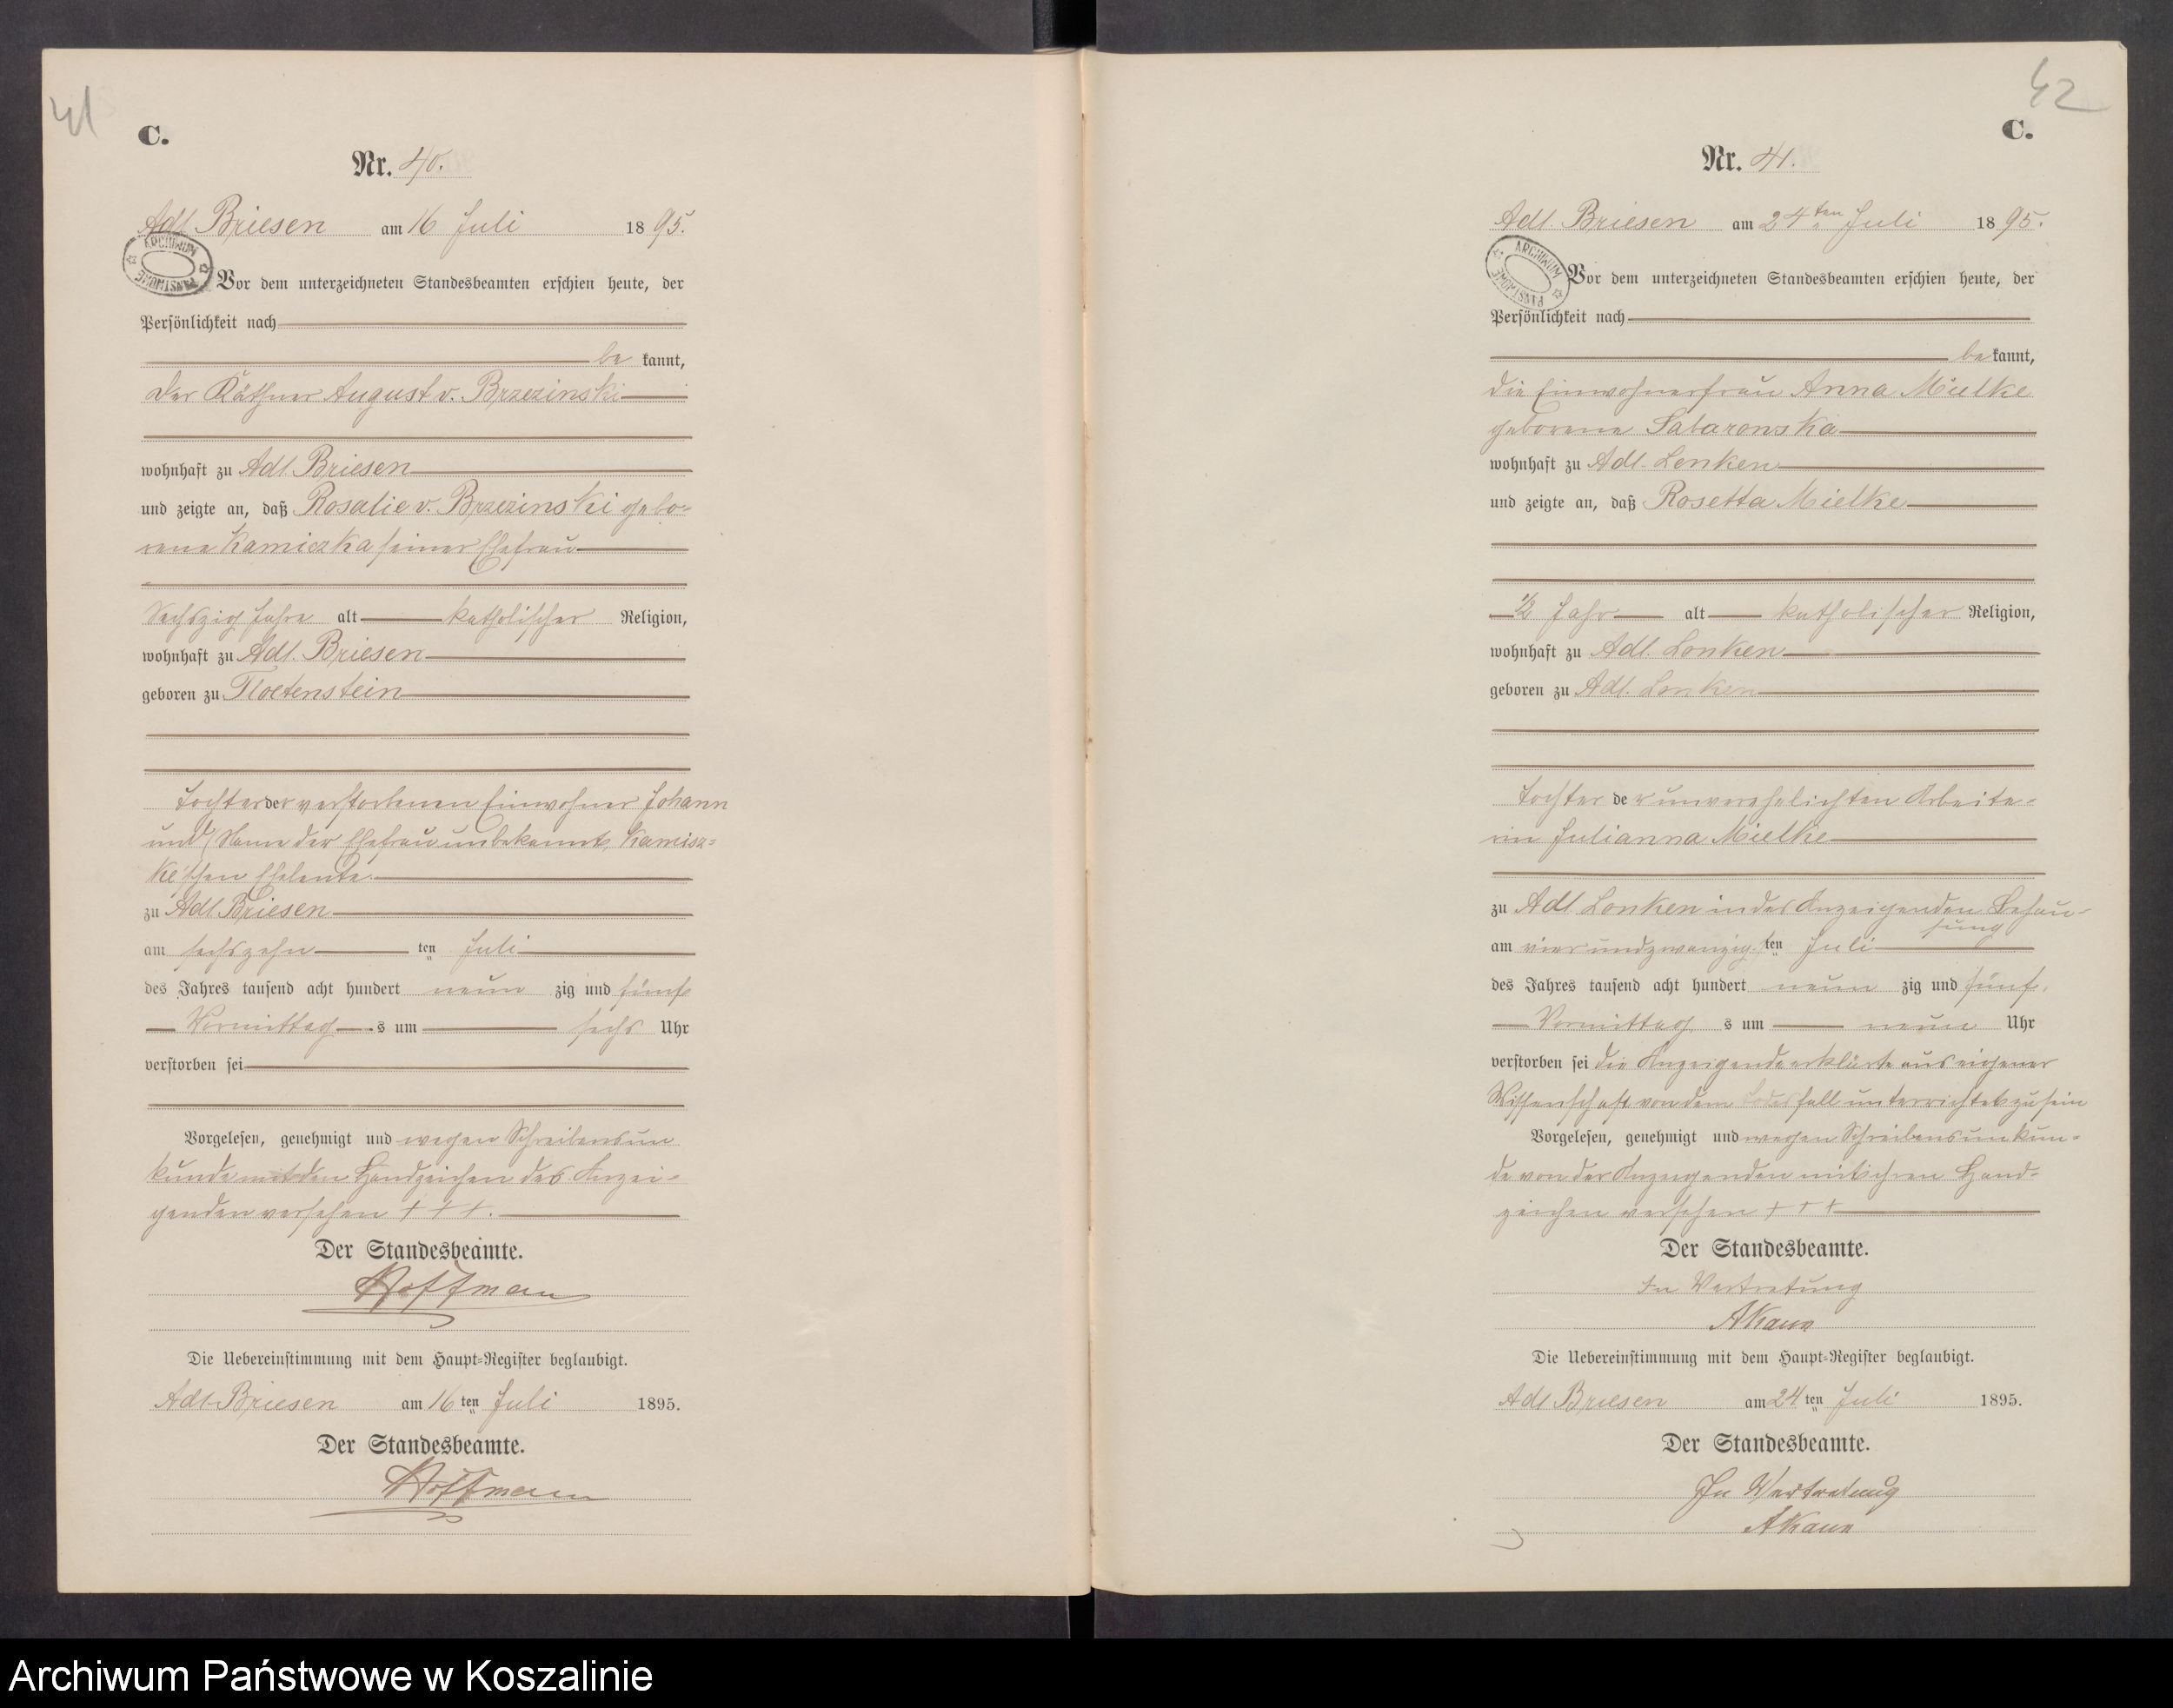 41
C.
Nr. 40.
Adl. Briesen am 16 Juli 1895.
ARCHIWUM PAŃSTWOWE
Vor dem unterzeichneten Standesbeamten erschien heute, der
Persönlichkeit nach
bekannt,
der Käthner August v. Brzezinski
wohnhaft zu Adl. Briesen
und zeigte an, daß Rosalie v. Brzezinski gebo-
rene Kamiczka seiner Ehefrau
Sechszig Jahre alt katholischer Religion,
wohnhaft zu Adl. Briesen
geboren zu Floetenstein
Tochter der verstorbenen Einwohner Johann
und (Name der Ehefrau unbekannt) Kamisz-
ke'schen Eheleute.
zu Adl. Briesen
am sechszehn ten Juli
des Jahres tausend acht hundert neun zig und fünf
Vormittag s um sechs Uhr
verstorben sei
Vorgelesen, genehmigt und wegen Schreibensun
kunde mit den Handzeichen des Anzei-
genden versehen + + +.
Der Standesbeamte.
Hoffmann
Die Uebereinstimmung mit dem Haupt-Register beglaubigt.
Adl. Briesen am 16ten Juli 1895.
Der Standesbeamte.
Hoffmann
42
C.
Nr. 41.
Adl. Briesen am 24ten Juli 1895.
ARCHIWUM PAŃSTWOWE
Vor dem unterzeichneten Standesbeamten erschien heute, der
Persönlichkeit nach
bekannt,
die Einwohnerfrau Anna Mielke
geborene
wohnhaft zu Adl. Lonken
und zeigte an, daß Rosetta Mielke
1/2 Jahr alt katholischer Religion,
wohnhaft zu Adl. Lonken
geboren zu Adl. Lonken
Tochter der unverehelichten Arbeite-
rin Julianna Mielke
zu Adl. Lonken in der Anzeigenden Behau-
sung
am vierundzwanzigsten Juli
des Jahres tausend acht hundert neun zig und fünf.
Vormittag s um neun Uhr
verstorben sei die Anzeigende erklärte aus eigener
Wissenschaft von dem Todesfall unterrichtet zu sein
Vorgelesen, genehmigt und wegen Schreibensunkun-
de von der Anzeigenden mit ihren Hand-
zeichen versehen + + +
Der Standesbeamte.
In Vertretung
Die Uebereinstimmung mit dem Haupt-Register beglaubigt.
Adl. Briesen am 24ten Juli 1895.
Der Standesbeamte.
In Vertretung
Archiwum Państwowe w Koszalinie